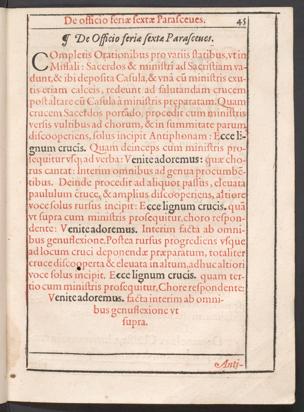 De officio feriæ sextæ Parasceues.
45
¶ De Officio feriæ sextæ Parasceues.
Completis Orationibus pro variis statibus, vt in
Missali: Sacerdos & ministri ad Sacristiam va-
dunt, & ibi deposita Casula, & vnà cū ministris exu-
tis etiam calceis, redeunt ad salutandam crucem
post altare cū Casula à ministris preparatam. Quam
crucem Sacerdos portādo, procedit cum ministris
versis vultibus ad chorum, & in summitate parum
discooperiens, solus incipit Antiphonam: Ecce li-
gnum crucis. Quam deinceps cum ministris pro-
sequitur vsq; ad verba: Venite adoremus: quæ cho-
rus cantat: Interim omnibus ad genua procumbē-
tibus. Deinde procedit ad aliquot passus, eleuata
paululum cruce, & amplius discooperiens, altiore
voce solus rursus incipit: Ecce lignum crucis. quā
vt supra cum ministris prosequitur, choro respon-
dente: Venite adoremus. Interim facta ab omni-
bus genuflexione. Postea rursus progrediens vsque
ad locum cruci deponendæ præparatum, totaliter
cruce discooperta & eleuata in altum, adhuc altiori
voce solus incipit. Ecce lignum crucis. quam ter-
tio cum ministris prosequitur, Chore respondente:
Venite adoremus. facta interim ab omni-
bus genuflexione vt
supra.
Anti-